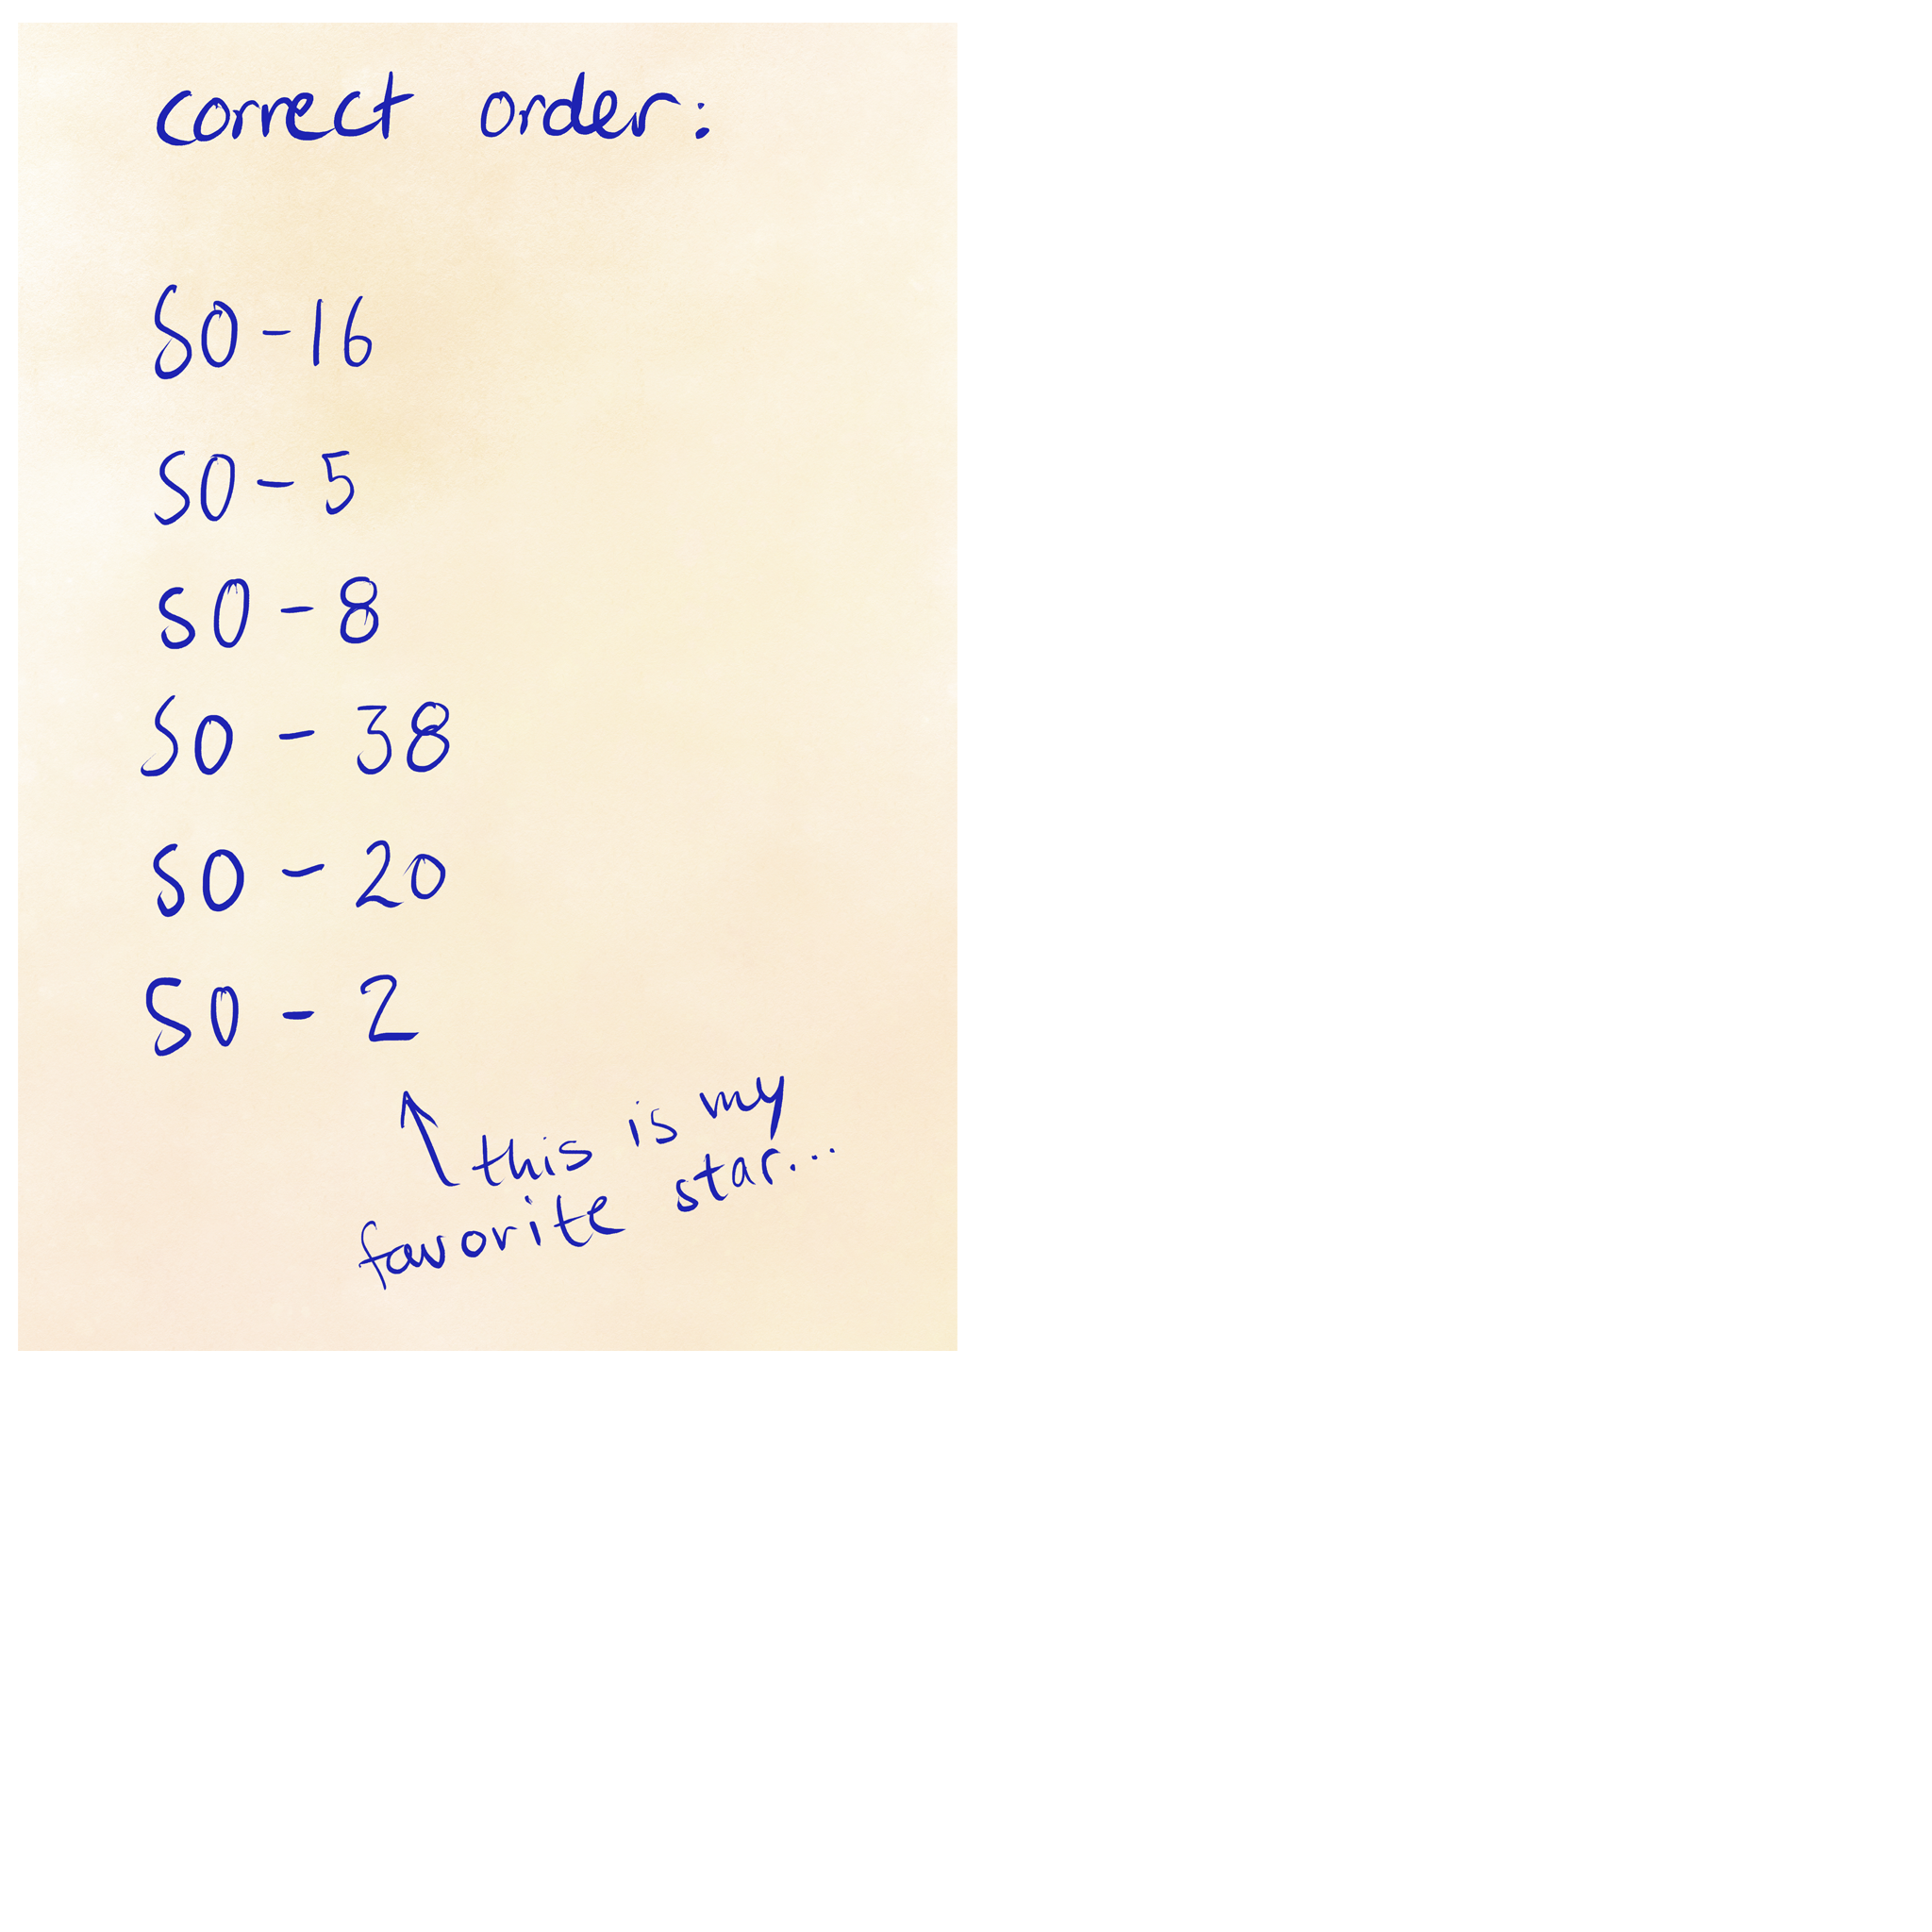 correct order:
SO-16
SO-5
SO-8
SO-38
SO-20
SO-2
this is my
favorite star...